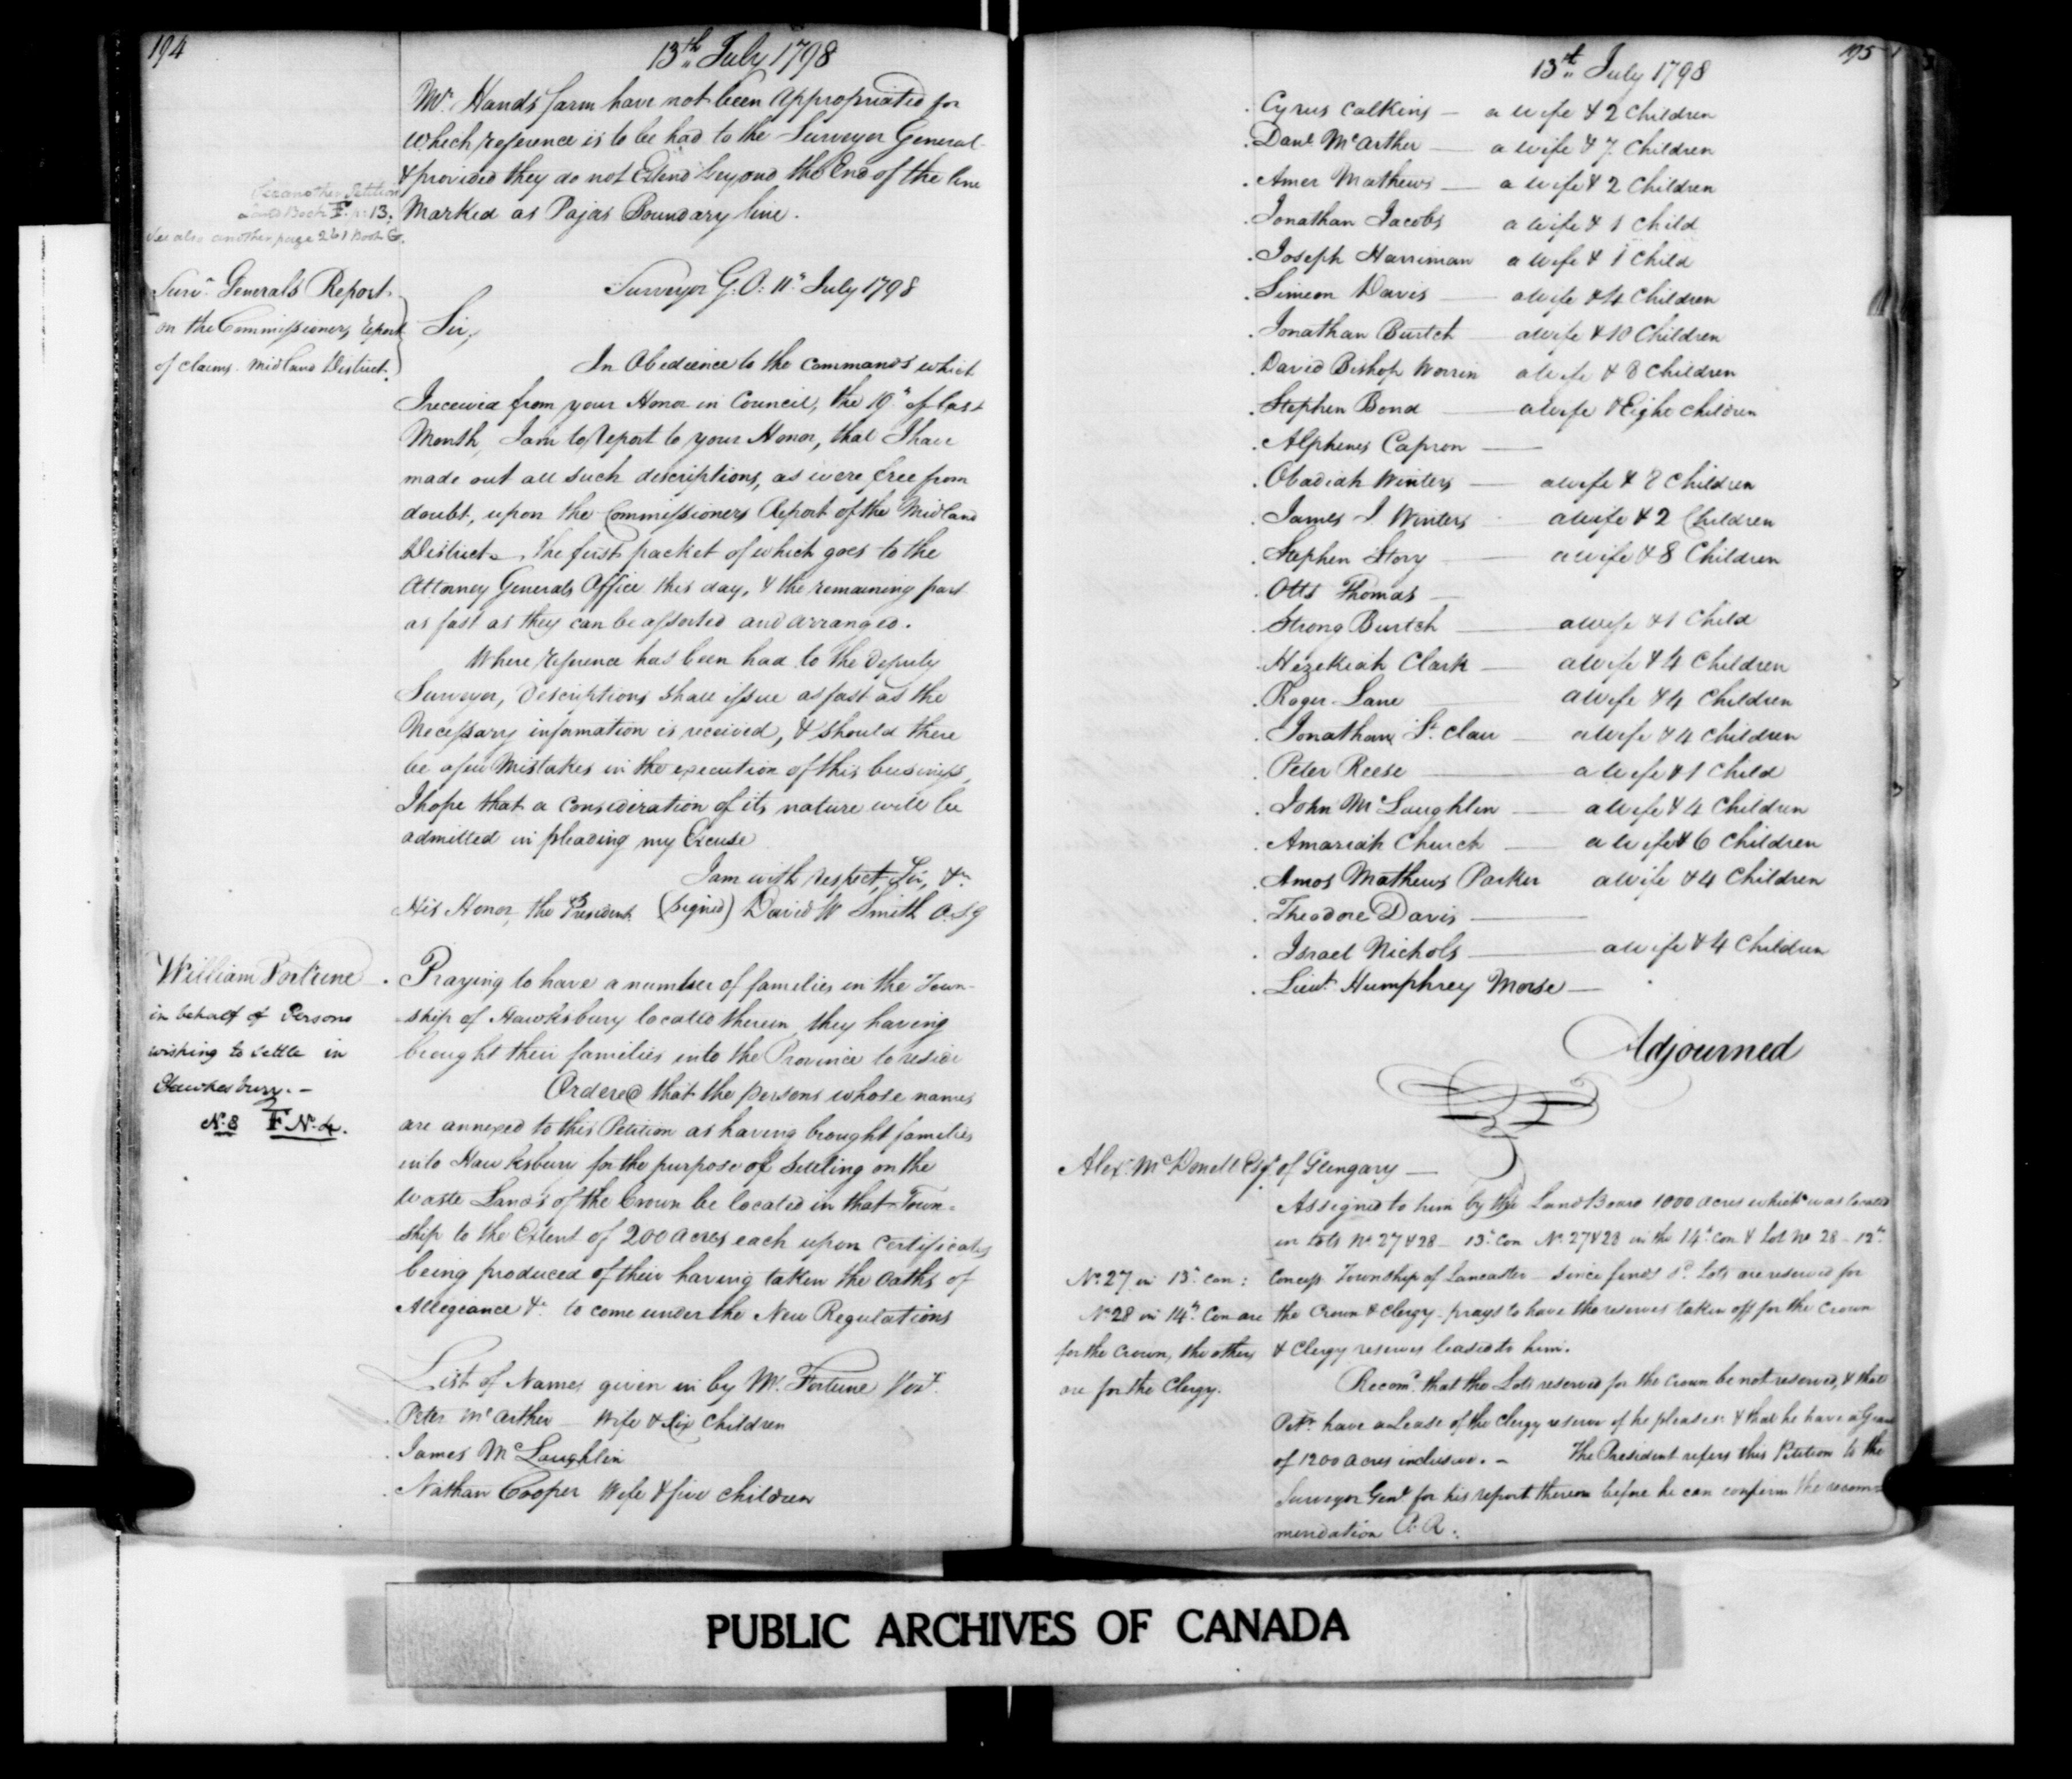 194
13th July 1798
Mr. Hands farm have not been appropriated for
which reference is to be had to the Surveyor General
& provided they do not Extend beyond the End of the line
Marked as Pajas Boundary line.
See another Petition
Book F. p. 13.
See also another page 261 Book G.
Surv. Generals Report
on the Commissioners report
of claims. Midland District.
Surveyor G. O: 11th July 1798
Sir,
In Obedience to the commands which
I received from your Honor in Council, the 19th of last
Month, I am to report to your Honor, that I have
made out all such descriptions, as were free from
doubt, upon the Commissioners Report of the Midland
District. The first packet of which goes to the
Attorney Generals Office this day, & the remaining part
as fast as they can be assorted and arranged.
Where reference has been had to the Deputy
Surveyor, Descriptions shall issue as fast as the
Necessary information is received, & should there
be a few Mistakes in the execution of this business,
I hope that a consideration of its nature will be
admitted in pleading my Excuse
I am with respect, Sir, &c.
His Honor, the President (signed) David W Smith A. S G
William Fortune
in behalf of Persons
wishing to settle in
Hawkesbury. -
No. 8 F No. 4.
Praying to have a number of families in the Town-
ship of Hawksbury located therein, they having
brought their families into the Province to reside
Ordered that the persons whose names
are annexed to this Petition as having brought families
into Hawksbury for the purpose of settling on the
Waste Lands of the Crown be located in that Town-
ship to the Extent of 200 acres each upon Certificates
being produced of their having taken the oaths of
Allegiance &c. to come under the New Regulations
List of Names given in by Mr. Fortune Vizt.
Peter McArther Wife & six children
James McLaughlin
Nathan Cooper Wife & five children
195
13th July 1798
Cyrus Calkins - a wife & 2 Children
Danl. McArther - a wife & 7 Children
Amer Mathews - a wife & 2 Children
Jonathan Jacobs a wife & 1 Child
Joseph Harriman a wife & 1 Child
Simeon Davis - a wife & 4 Children
Jonathan Burtch a wife & 10 Children
David Bishop Worrin a wife & 8 Children
Stephen Bond - a wife & Eight children
Alphenes Capron -
Obadiah Winters - a wife & 8 Children
James J. Winters a wife & 2 Children
Stephen Story - a wife & 8 Children
Otts Thomas -
Strong Burtch - a wife & 1 Child
Hezekiah Clark - a wife & 4 Children
Roger Lane a wife & 4 Children
Jonathan St. Clair - a wife & 4 Children
Peter Reese - a wife & 1 Child
John McLaughlin - a wife & 4 Children
Amariah Church - a wife & 6 Children
Amos Mathews Parker a wife & 4 Children
Theodore Davis -
Israel Nichols - a wife & 4 Children
Lieut. Humphrey Morse -
Adjourned
Alexr. McDonell Esqr. of Glengary -
Assigned to him by the Land Board 1000 acres which was located
in lots No. 27 & 28 - 13th Con No. 27 & 28 in the 14th Con & Lot No 28 - 12th
Concess. Township of Lancaster - since finds sd. Lots are reserved for
the Crown & Clergy. prays to have the reserves taken off for the Crown
& Clergy reserves leased to him.
No. 27 in 13th con:
No. 28 in 14th Con are
for the Crown, the others
are for the Clergy.
Recomd. that the Lots reserved for the Crown be not reserved, & that
Petr. have a Lease of the Clergy reserve if he pleases & that he have a Grant
of 1200 acres inclusive. - The President refers this Petition to the
Surveyor Genl. for his report thereon before he can confirm the recom-
mendation P. R.
PUBLIC ARCHIVES OF CANADA